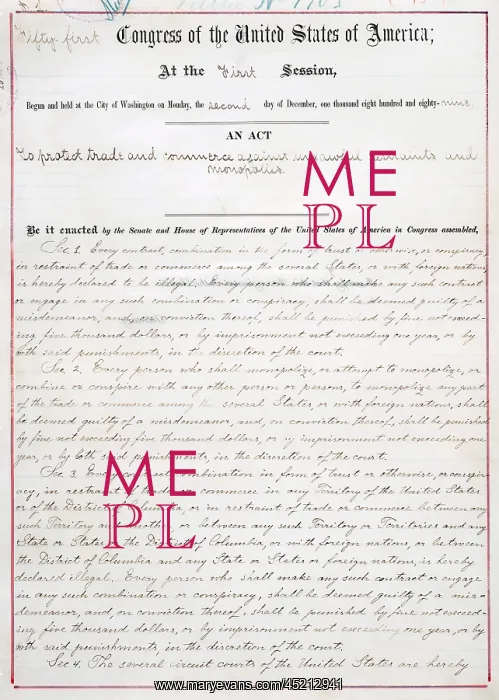 Fifty-first Congress of the United States of America;
At the First Session,
Begun and held at the City of Washington on Monday, the second day of December, one thousand eight hundred and eighty-nine.
AN ACT
To protect trade and commerce against unlawful restraints and
monopolies.
ME
PL
Be it enacted by the Senate and House of Representatives of the United States of America in Congress assembled,
Sec. 1. Every contract, combination in the form of trust or otherwise, or conspiracy,
in restraint of trade or commerce among the several States, or with foreign nations,
is hereby declared to be illegal. Every person who shall make any such contract
or engage in any such combination or conspiracy, shall be deemed guilty of a
misdemeanor, and, on conviction thereof, shall be punished by fine not exceed-
ing five thousand dollars, or by imprisonment not exceeding one year, or by
both said punishments, in the discretion of the court.
Sec. 2. Every person who shall monopolize, or attempt to monopolize, or
combine or conspire with any other person or persons, to monopolize any part
of the trade or commerce among the several States, or with foreign nations, shall
be deemed guilty of a misdemeanor, and, on conviction thereof, shall be punished
by fine not exceeding five thousand dollars, or by imprisonment not exceeding one
year, or by both said punishments, in the discretion of the court.
Sec. 3. Every contract, combination in form of trust or otherwise, or conspir-
acy, in restraint of trade or commerce in any Territory of the United States
or of the District of Columbia, or in restraint of trade or commerce between any
such Territory and another, or between any such Territory or Territories and any
State or States or the District of Columbia, or with foreign nations, or between
the District of Columbia and any State or States or foreign nations, is hereby
declared illegal. Every person who shall make any such contract or engage
in any such combination or conspiracy, shall be deemed guilty of a mis-
demeanor, and, on conviction thereof, shall be punished by fine not exceed-
ing five thousand dollars, or by imprisonment not exceeding one year, or by
both said punishments, in the discretion of the court.
Sec. 4. The several circuit courts of the United States are hereby
ME
PL
www.maryevans.com/45212941